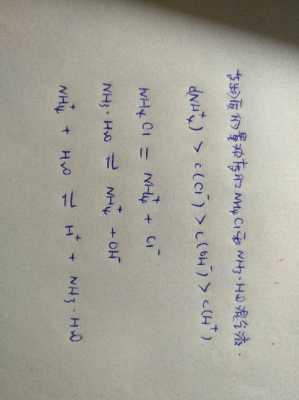 物质的量浓度的 NH₄Cl 与 NH₃·H₂O 混合液.
c(NH₄⁺) > c(Cl⁻) > c(OH⁻) > c(H⁺)
NH₄Cl = NH₄⁺ + Cl⁻
NH₃·H₂O ⇌ NH₄⁺ + OH⁻
NH₄⁺ + H₂O ⇌ H⁺ + NH₃·H₂O